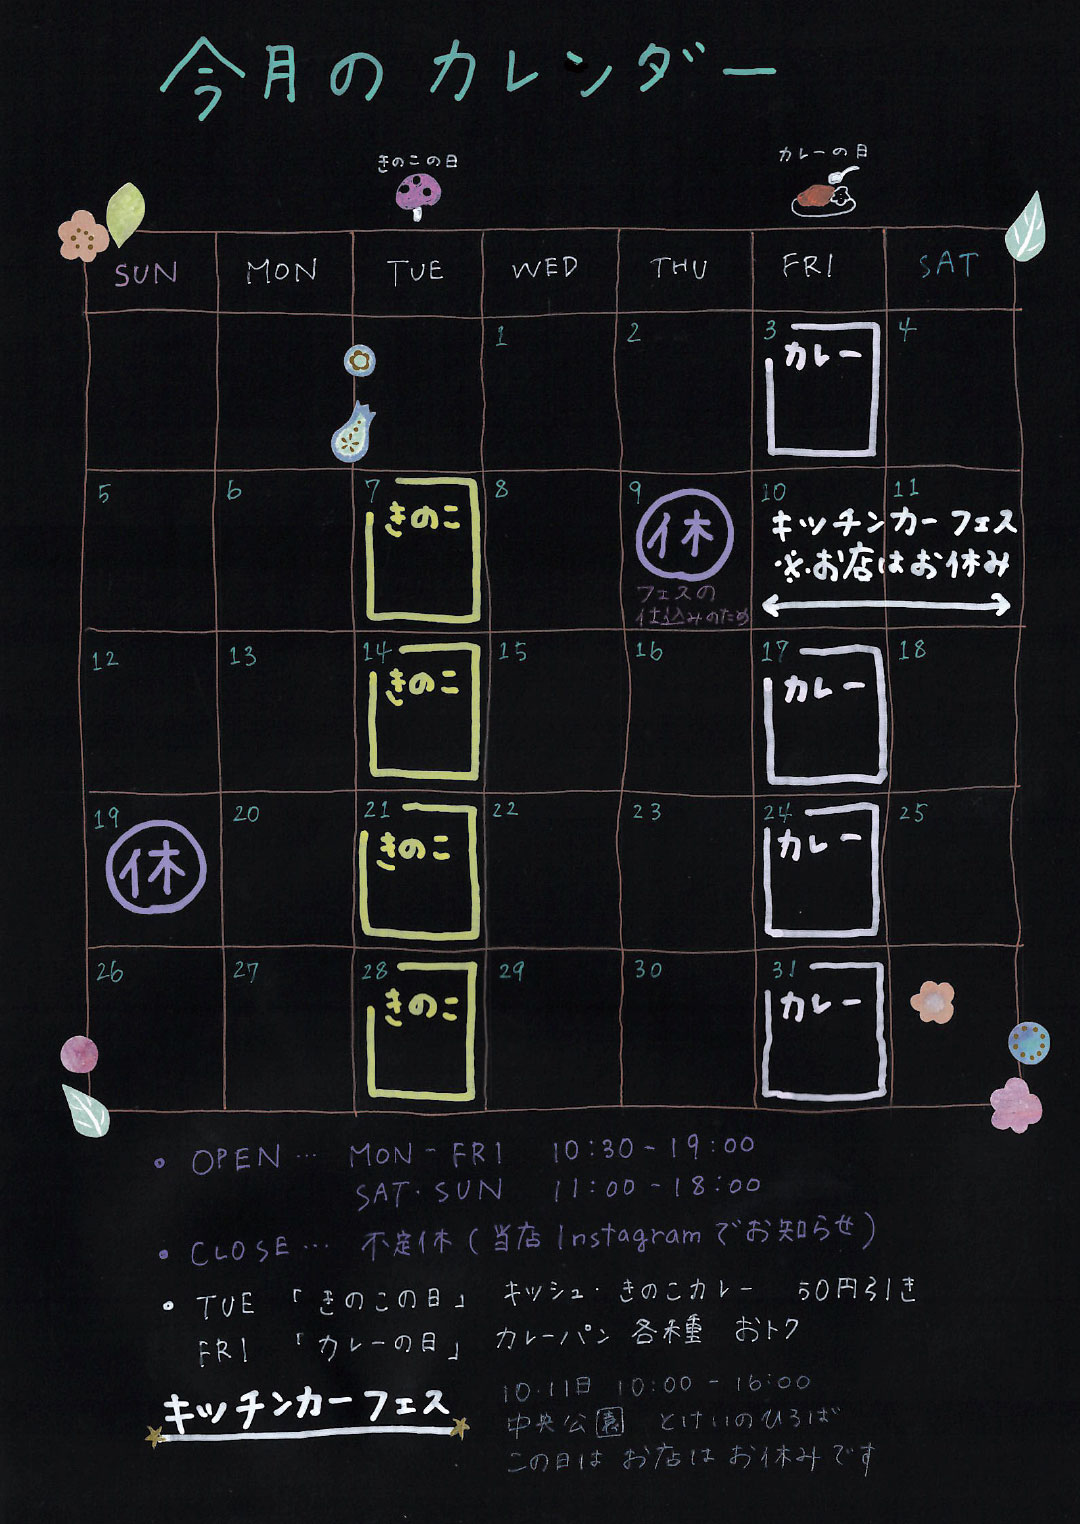 今月のカレンダー
きのこの日
カレーの日
SUN MON TUE WED THU FRI SAT
1 2 3 4
カレー
5 6 7 8 9 10 11
きのこ
休
フェスの
仕込みのため
キッチンカーフェス
※お店はお休み
12 13 14 15 16 17 18
きのこ
カレー
19 20 21 22 23 24 25
休
きのこ
カレー
26 27 28 29 30 31
きのこ
カレー
• OPEN… MON-FRI 10:30-19:00
SAT・SUN 11:00-18:00
• CLOSE… 不定休(当店Instagramでお知らせ)
• TUE 「きのこの日」 キッシュ・きのこカレー 50円引き
FRI 「カレーの日」 カレーパン各種 おトク
キッチンカーフェス
10・11日 10:00-16:00
中央公園 とけいのひろば
この日は お店は お休みです